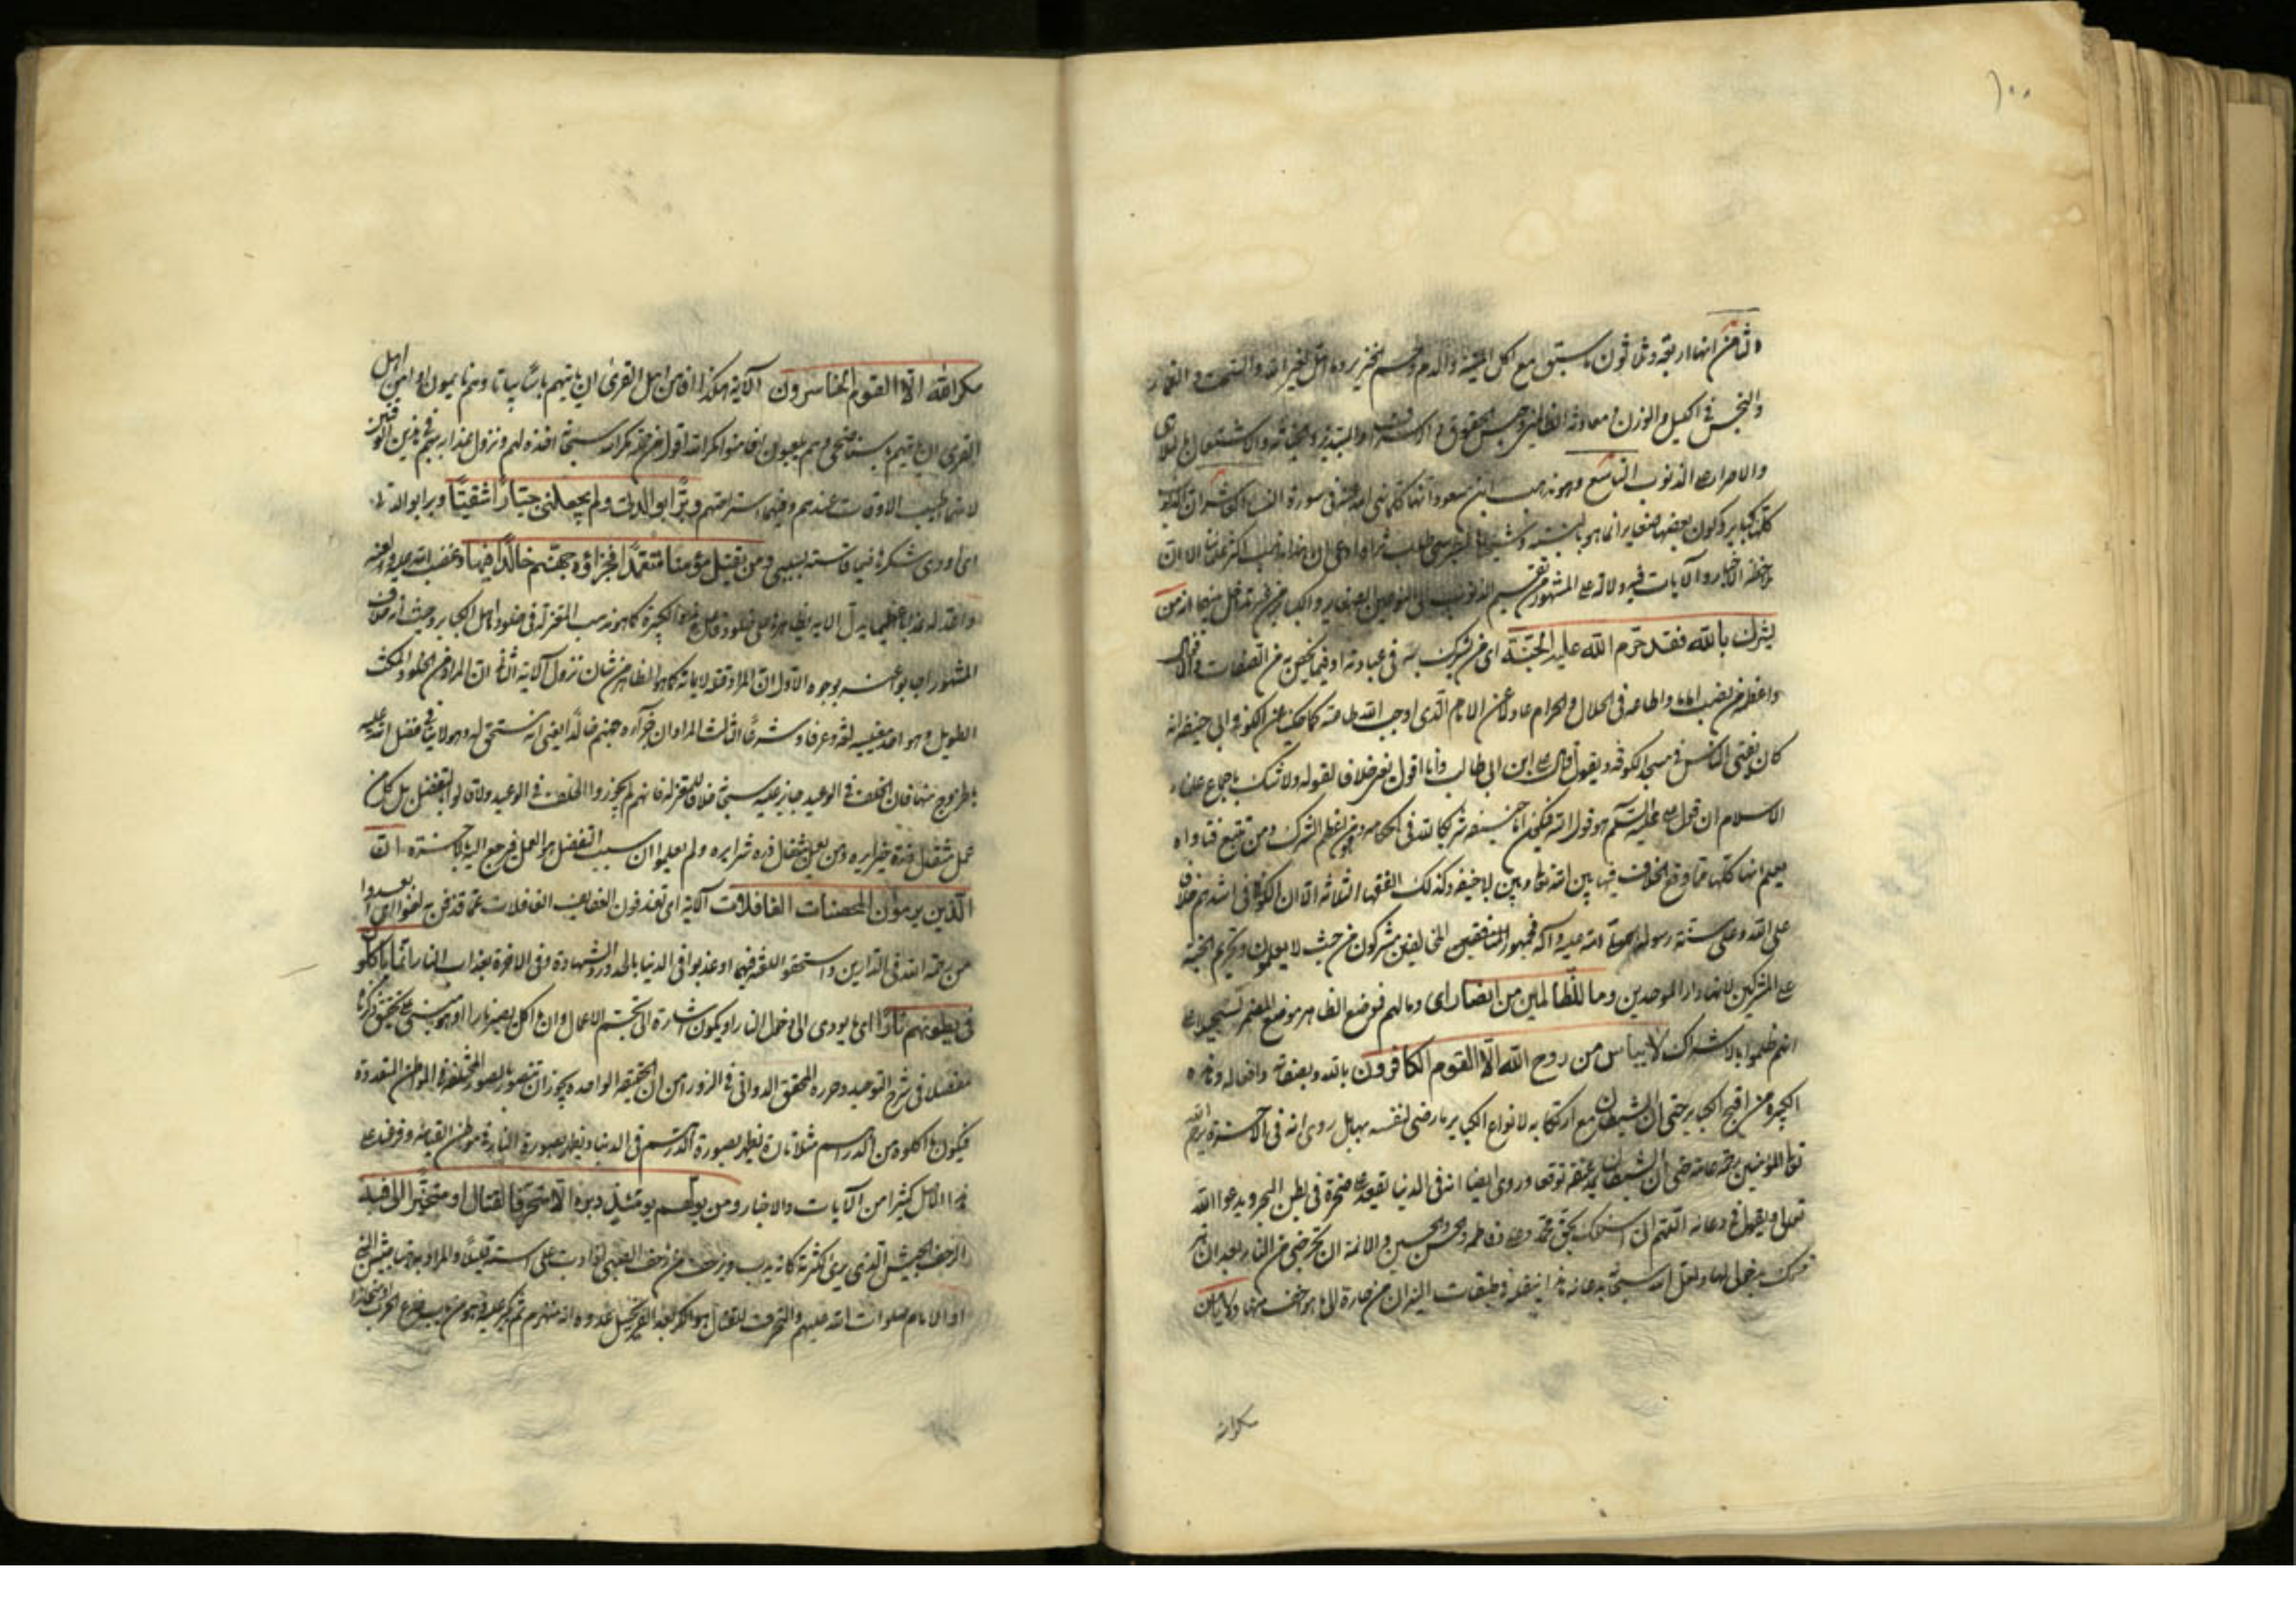 ١٠٠
الثامن انها اربعة وثلاثون ما سبق مع اكل الميتة والدم ولحم الخنزير وما اهل لغير الله والسحت و القمار
والبخس في الكيل والوزن ومعاونة الظالمين وحبس الحقوق و الاسراف والتبذير والخيانة والاشتغال بالملاهي
والاصرار على الذنوب التاسع وهو مذهب ابن مسعود انها كلما نهى الله عنه في سورة النساء العاشر ان الذنوب
كلها كباير وكون بعضها صغاير انما هو بالنسبة وشيخنا الطبرسي طاب ثراه ادعى ان هذا مذهب اكثر علمائنا الا ان
ملاحظة الاخبار والآيات فيه دلالة على المشهور من تقسيم الذنوب الى النوعين الصغاير والكباير من غير تداخل بينهما انه من
يشرك بالله فقد حرّم الله عليه الجنّة اى من يشرك به في عبادته او فيما يختص به من الصفات والافعال
واعظم من نصب اماما واطاعه في الحلال والحرام عادلا عن الامام الذى اوجب الله طاعته كما حكي عن الكوفي ابي حنيفة انه
كان يفتى الناس في مسجد الكوفة ويقول قال على ابن ابي طالب وانا اقول يعنى خلافا لقوله ولا شك باجماع علماء
الاسلام ان قول على عليه السلم هو قول الله فيكون ابا حنيفة شريكا لله في احكامه وهو من اعظم الشرك ومن تتبع فتاواه
يعلم انها كلها مما وقع الخلاف فيها بين الله تعالى وبين ابا حنيفة وكذلك الفقهاء الثلاثة الا ان الكوفي اشدهم خلافا
على الله وعلى سنة رسوله صلى الله عليه وآله فجمهور المنافقين المخالفين مشركون من حيث لا يعلمون وتحريم الجنة
على المشركين لانها دار الموحدين وما للظّالمين من انصار اى وما لهم فوضع الظاهر موضع المضمر تسجيلا على
انهم ظلموا بالاشراك لا ييأس من روح الله الّا القوم الكافرون بالله وبصفاته وافعاله وهذه
الكبيرة من اقبح الكباير حتى ان الشيطان مع ارتكابه لانواع الكباير ما رضى لنفسه بها بل روى انه في الآخرة يرحم الله
تعالى المؤمنين رحمة عامة حتى ان الشيطان يمد عنقه توقعا وروى ايضا انه في الدنيا يقعد على صخرة في بطن البحر ويدعوا الله
تعالى ويقول في دعائه اللهم اني اسئلك بحق محمد وعلى وفاطمة والحسن والحسين والائمة ان تخرجنى من النار بعد ان تبر
قسمك بدخولى لها ولعل الله سبحانه بدعائه هذا ينقله في طبقات النيران من حارة الى ما هو اخف منها ولا يأمن
مكر الله
مكر الله الّا القوم الخاسرون الآية هكذا افأمن اهل القرى ان يأتيهم بأسنا بياتا وهم نائمون او امن اهل
القرى ان يأتيهم بأسنا ضحى وهم يلعبون افأمنوا مكر الله اقول مكر الله سبحانه اخذه لهم ونزول عذابه بهم في هذين الوقتين
لانهما اطيب الاوقات عندهم وفيهما استراحتهم وبرّا بوالدتى ولم يجعلنى جبّارا شقيّا وبرا بوالدته
اى اودى شكرها فيما قاسته بسببى ومن يقتل مؤمنا متعمّدا فجزاؤه جهنّم خالدا فيها وغضب الله عليه ولعنه
واعد له عذابا عظيما يدل الآية بظاهره على خلود فاعل هذه الكبيرة كما هو مذهب المعتزلة في خلود اهل الكباير وحيث انه خلاف
المشهور اجابوا عنه بوجوه الاول ان المراد قتله لايمانه كما هو الظاهر من شان نزول الآية الثاني ان المراد من الخلود المكث
الطويل وهو احد معنييه لغة وعرفا وشرعا الثالث المراد ان جزاءه جهنم خالدا يعنى انه يستحق له وهو لا ينافي تفضل الله عليه
بالخروج منها فان الخلف في الوعيد جايز عليه سبحانه خلافا للمعتزلة فانهم لم يجوزوا الخلف في الوعيد ولا قالوا بالتفضل بل كل من
عمل مثقال ذرة خيرا يره ومن يعمل مثقال ذرة شرا يره ولم يعلموا ان سبب التفضل هو العمل فمرجع اليه بالآخرة انّ
الّذين يرمون المحصنات الغافلات الآية اى يقذفون العفايف الغافلات عما قذفن به لعنوا اى ابعدوا
من رحمة الله في الدارين واستحقوا اللعنة فيهما او عذبوا في الدنيا بالحد ورد الشهادة وفى الاخرة بعذاب النار انّما يأكلون
في بطونهم نارا اى ما يودى الى دخول النار او يكون اشارة الى تجسم الاعمال وان ما اكل يصير نارا او هو مبنى على تحقيق ذكرناه
مفصلا في شرح التوحيد وحرره المحقق الدوانى في الزوراء من ان الحقيقة الواحدة يجوز ان تتصور بالصور المختلفة في المواطن المتعددة
فيكون ما اكلوه من الدراهم مثلا تارة يظهر بصورة الدرهم في الدنيا ويظهر بصورة النار في موطن القيمة وفرع على
هذا الاصل كثيرا من الآيات والاخبار ومن يولّهم يومئذ دبره الّا متحرّفا لقتال او متحيّزا الى فئة
الزحف الجيش الذى يرى لكثرته كانه يدب ويزحف من زحف الصبى اذا دب على استه قليلا والمراد بها جيش النبي
او الامام صلوات الله عليهم والتحرف للقتال هو الكر بعد الفر يخيل عدوه انه منهزم ثم يكر عليه وهو من باب خدع الحرب او متحيزا